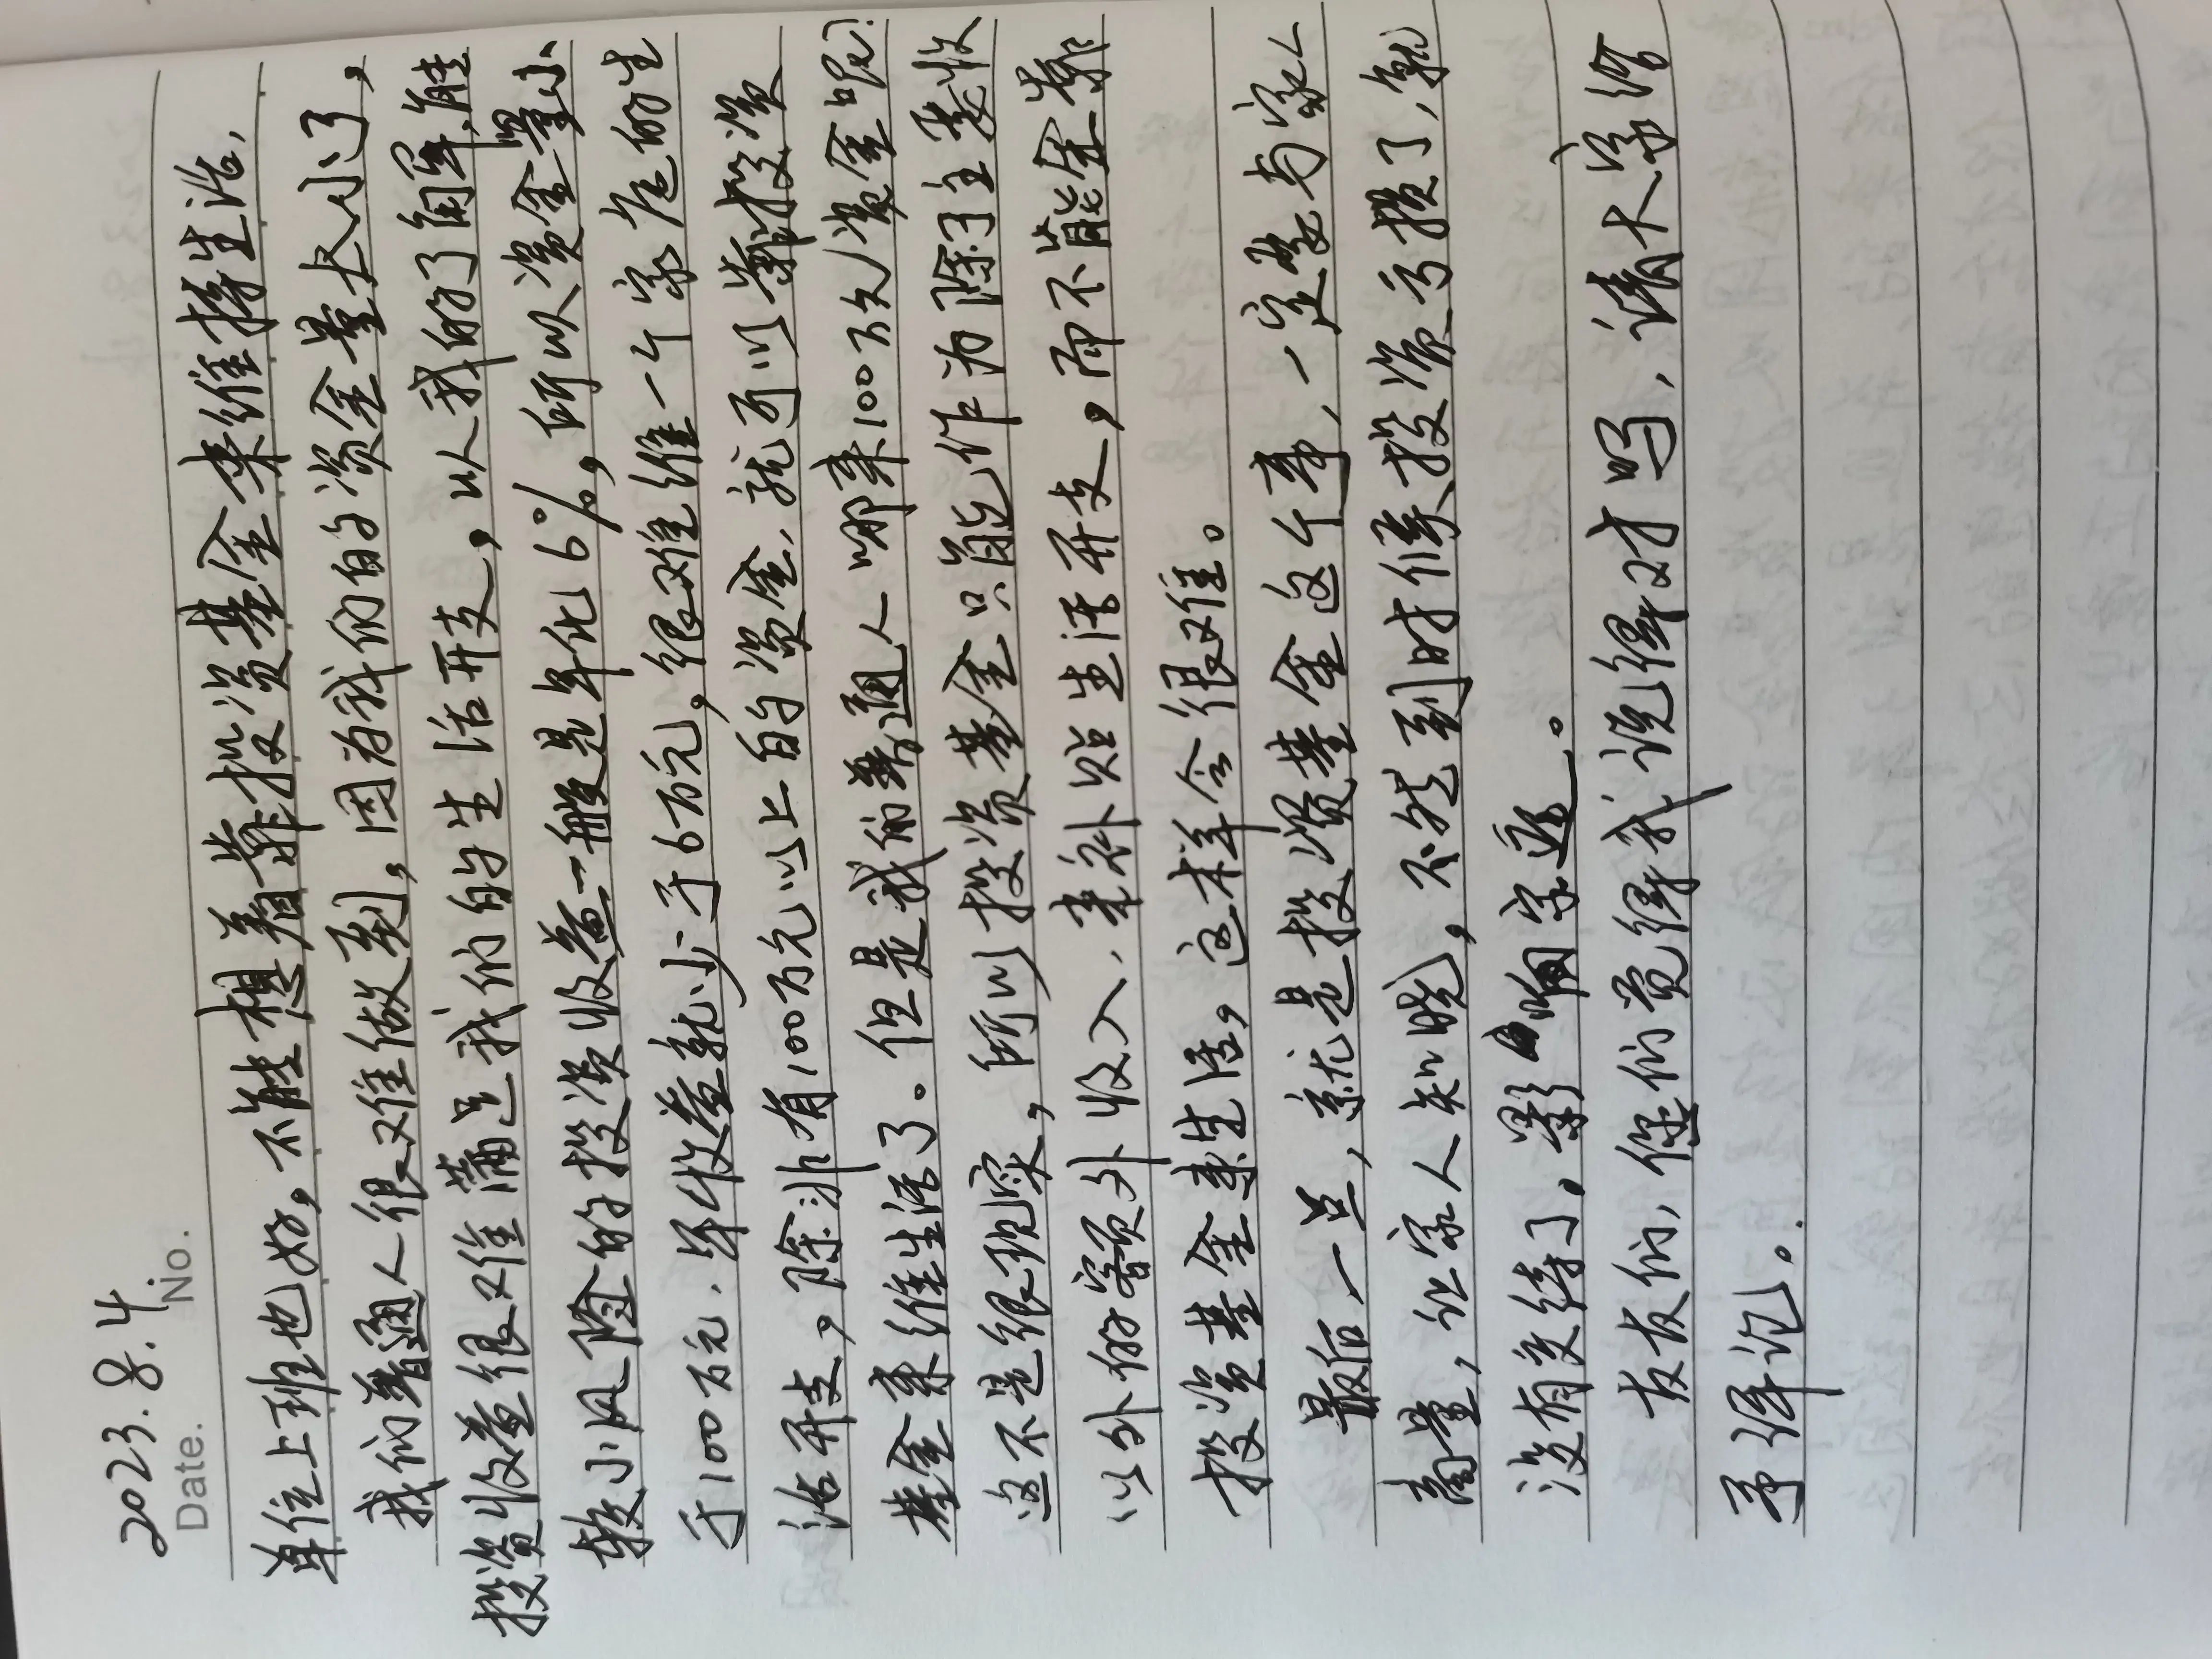 2023.8.4
Date. No.
单位上班也好。不能想着靠投资基金来维持生活,
我们普通人很难做到。因为我们的资金量太小了,
投资收益很难满足我们的生活开支,以我的了解,能
较小风险的投资收益一般是年化6%,所以资金量小
于100万元,年收益就少于6万元,很难维一个家庭的生
活开支。除非有100万元以上的资金,就可以靠投资
基金来维生活了。但是我们普通人哪来100万元资金呢?
这不是很现实,所以投资基金只能作为除了主要收
以外的额外收入,来补贴生活开支,而不能全靠
投资基金来生活。这样会很难。
最后一点,就是投资基金这个事,一定要与家人
商量,让家人知晓,不然到时候投资亏损了,就
没有交待了。影响家庭。
友友们,你们觉得我说得对吗,请大家给
予评论。